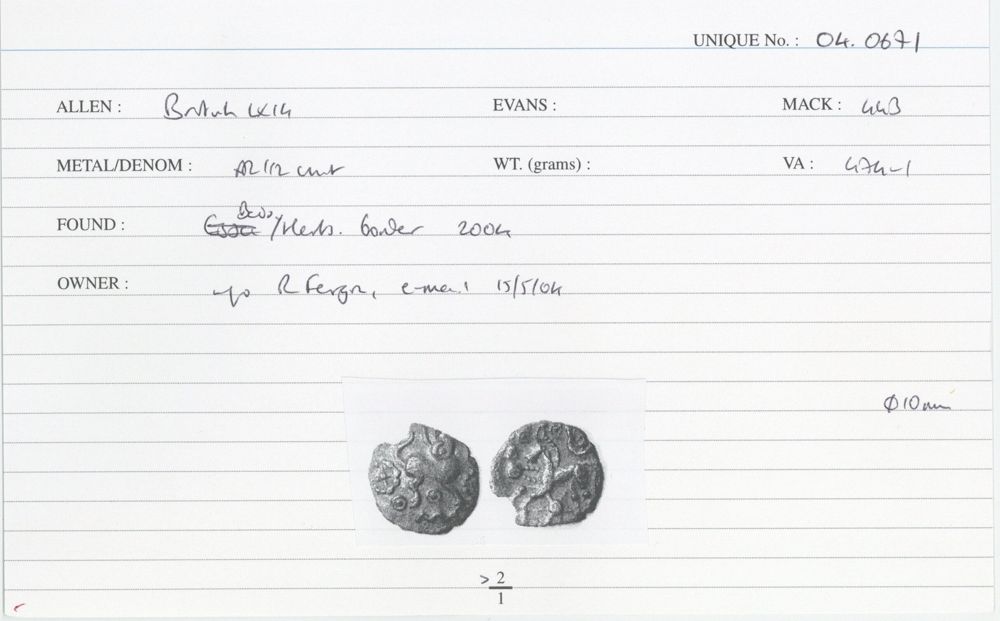 UNIQUE No. : 04. 0671
ALLEN : British LX14 EVANS : MACK : 443
METAL/DENOM : AR 1/2 unit WT. (grams) : VA : 474-1
FOUND : Essex Beds/Herts. border 2004
OWNER : R e-mail 15/5/04
Ø10mm
> 2
1